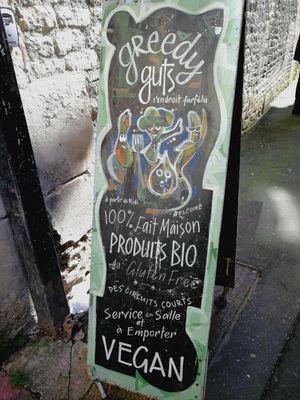 greedy
guts
l'endroit farfelu
à partir de Midi
WELCOME
100% Fait Maison
PRODUITS BIO
du Gluten Free
DES CIRCUITS COURTS
Service en Salle
et
à Emporter
VEGAN